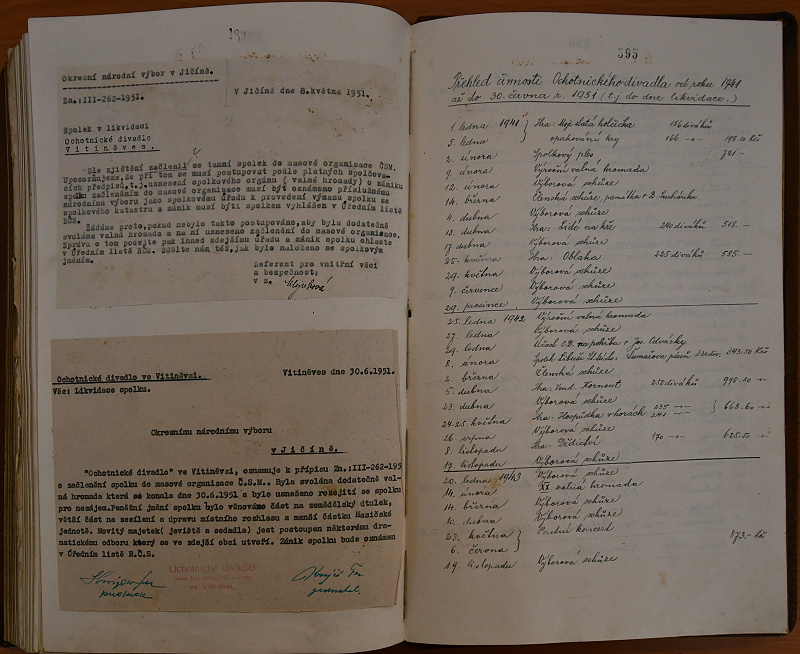 394
Okresní národní výbor v Jičíně.
Zn.:III-262-1951.
V Jičíně dne 8.května 1951.
Spolek v likvidaci
Ochotnické divadlo
Vitiněves.
Dle zjištění začlenil se tamní spolek do masové organisace ČSM.
Upozorňujeme, že při tom se musí postupovat podle platných spolčova-
cích předpisů, t.j. usnesení spolkového orgánu ( valné hromady) o zániku
spolku začleněním do masové organisace musí být oznámeno příslušnému
národnímu výboru jako spolkovému úřadu k provedení výmazu spolku ze
spolkového katastru a zánik musí být spolkem vyhlášen v Úředním listě
RČS.
Žádáme proto, pokud nebylo takto postupováno, aby byla dodatečně
svolána valná hromada a na ní usneseno začlenění do masové organisace.
Zprávu o tom podejte pak ihned zdejšímu úřadu a zánik spolku ohlaste
v Úředním listě RČS. Sdělte nám též, jak bylo naloženo se spolkovým
jměním.
Referent pro vnitřní věci
a bezpečnost:
v z.
Ochotnické divadlo ve Vitiněvsi.
Vitiněves dne 30.6.1951.
Věc: Likvidace spolku.
Okresnímu národnímu výboru
v Jičíně.
"Ochotnické divadlo" ve Vitiněvsi, oznamuje k přípisu Zn.:III-262-195
o začlenění spolku do masové organisace Č.S.M.. Byla svolána dodatečně val-
ná hromada která se konala dne 30.6.1951 a bylo usneseno rozejíti se spolku
pro nezájem. Peněžní jmění spolku bylo věnováno část na zemědělský útulek,
větší část na zesílení a úpravu místního rozhlasu a menší částku Hasičské
jednotě. Movitý majetek( jeviště a sedadla) jest postoupen některému dra-
matickému odboru který se ve zdejší obci utvoří. Zánik spolku bude oznámen
v Úředním listě R.Č.S.
Ochotnické divadlo
ve Vitiněvsi
395
Přehled činnosti Ochotnického divadla od roku 1941
až do 30. června r. 1951 (t.j. do dne likvidace.)
1. ledna 1941 Hra: Moje zlatá holčička 156 diváků
5. ledna opakování hry 166 198.10 Kčs
2. února Spolkový ples 701.-
9. února Výroční valná hromada
12. února Výborová schůze
14. března Členská schůze památka + B. Suchánka
4. dubna Výborová schůze
13. dubna Hra: Lidé na kře 240 diváků 518.-
17. dubna Výborová schůze
25. května Hra: Oblaka 225 diváků 585.-
29. května Výborová schůze
9. července Výborová schůze
29. prosince Výborová schůze
25. ledna 1942 Výroční valná hromada
27. ledna Výborová schůze
29. ledna Účast O.D. na pohřbu + Jos. Odvárky
8. února 343.50 Kčs
2. března Členská schůze
5. dubna Hra: Kornout 258 diváků 998.10
23. dubna Výborová schůze
24-25. května Hra: Hospůdka v horách 235 241 668.60
26. srpna Výborová schůze
8. listopadu Hra: Dědictví 170 625.50
17. listopadu Výborová schůze
20. ledna 1943 Výborová schůze
14. února XX. valná hromada
14. března Výborová schůze
10. dubna Výborová schůze
23. května Pěvecký koncert
6. června 873.- Kčs
19. listopadu Výborová schůze